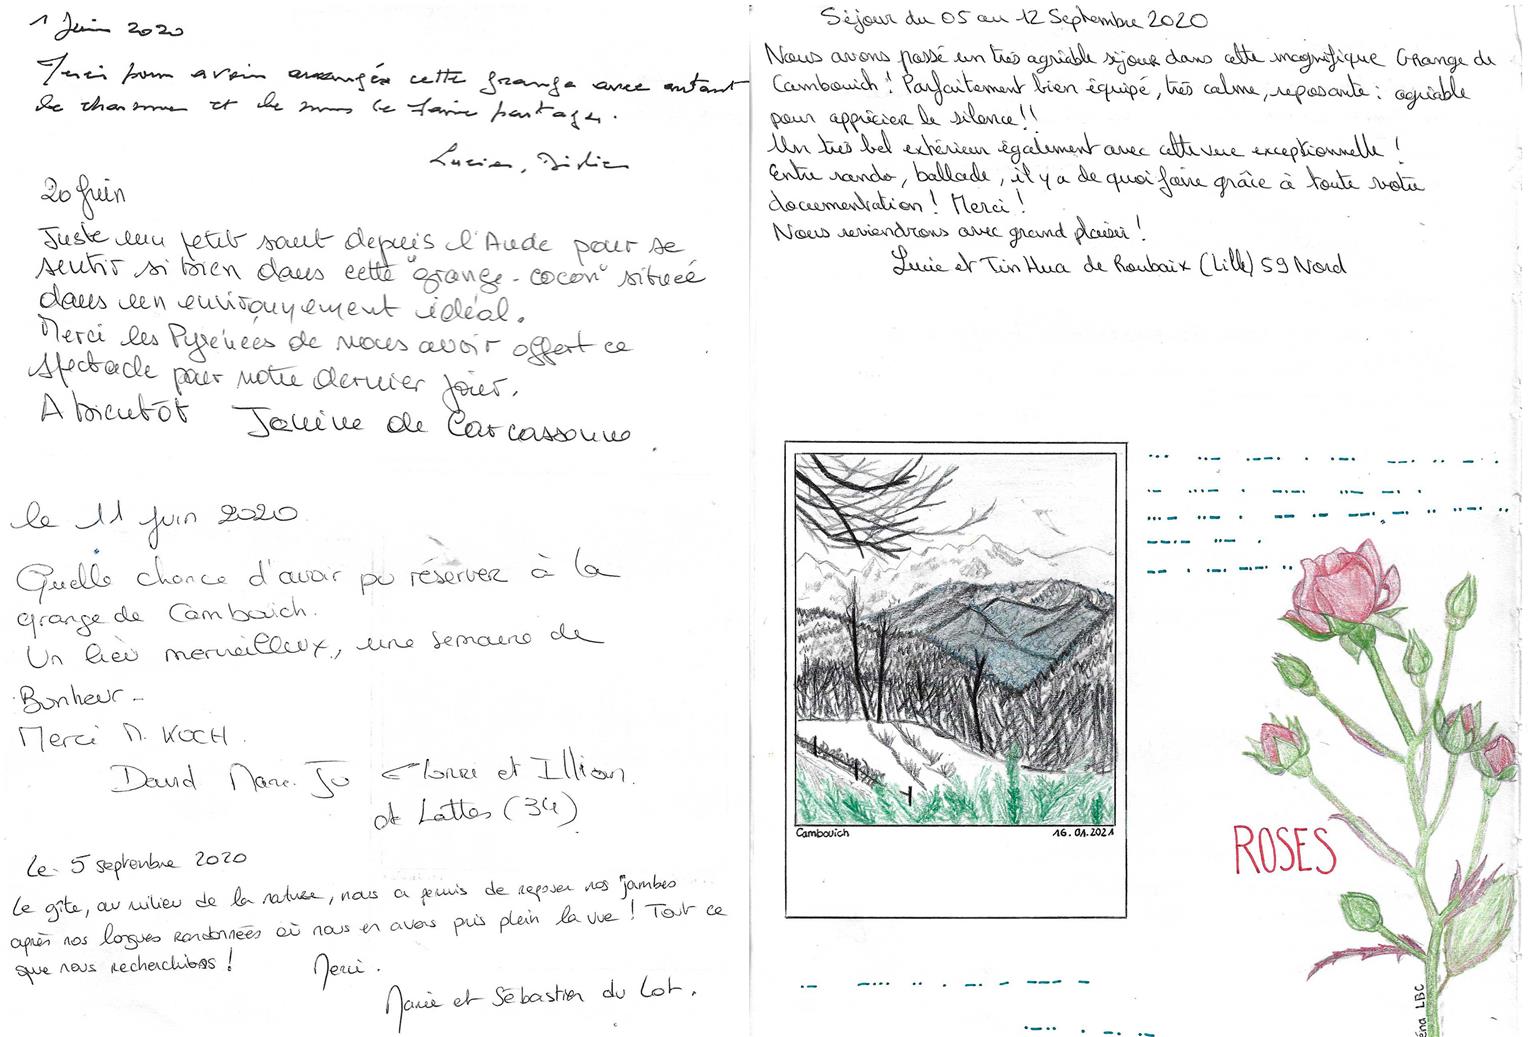 1 Juin 2020
Merci pour avoir arrangée cette grange avec autant
de charme et de nous le faire partager.
Lucien, Didier
20 Juin
Juste un petit saut depuis l'Aude pour se
sentir si bien dans cette "grange-cocon" située
dans un environnement idéal.
Merci les Pyrénées de nous avoir offert ce
spectacle pour notre dernier jour.
A bientôt Janine de Carcassonne.
le 11 juin 2020
Quelle chance d'avoir pu réserver à la
grange de Cambouich.
Un lieu merveilleux, une semaine de
Bonheur -
Merci M. KOCH.
David Marie-Jo et Illian.
de Lattes (34)
Le 5 septembre 2020
Le gîte, au milieu de la nature, nous a permis de reposer nos jambes
après nos longues randonnées où nous en avons pris plein la vue ! Tout ce
que nous recherchions ! Merci.
Marie et Sébastien du Lot.
Séjour du 05 au 12 Septembre 2020
Nous avons passé un très agréable séjour dans cette magnifique Grange de
Cambouich ! Parfaitement bien équipé, très calme, reposante : agréable
pour apprécier le silence !!
Un très bel extérieur également avec cette vue exceptionnelle !
Entre rando, ballade, il y a de quoi faire grâce à toute votre
documentation ! Merci !
Nous reviendrons avec grand plaisir !
Lucie et Tin Hua de Roubaix (Lille) 59 Nord
Cambouich 16.01.2021
ROSES
éna LBC